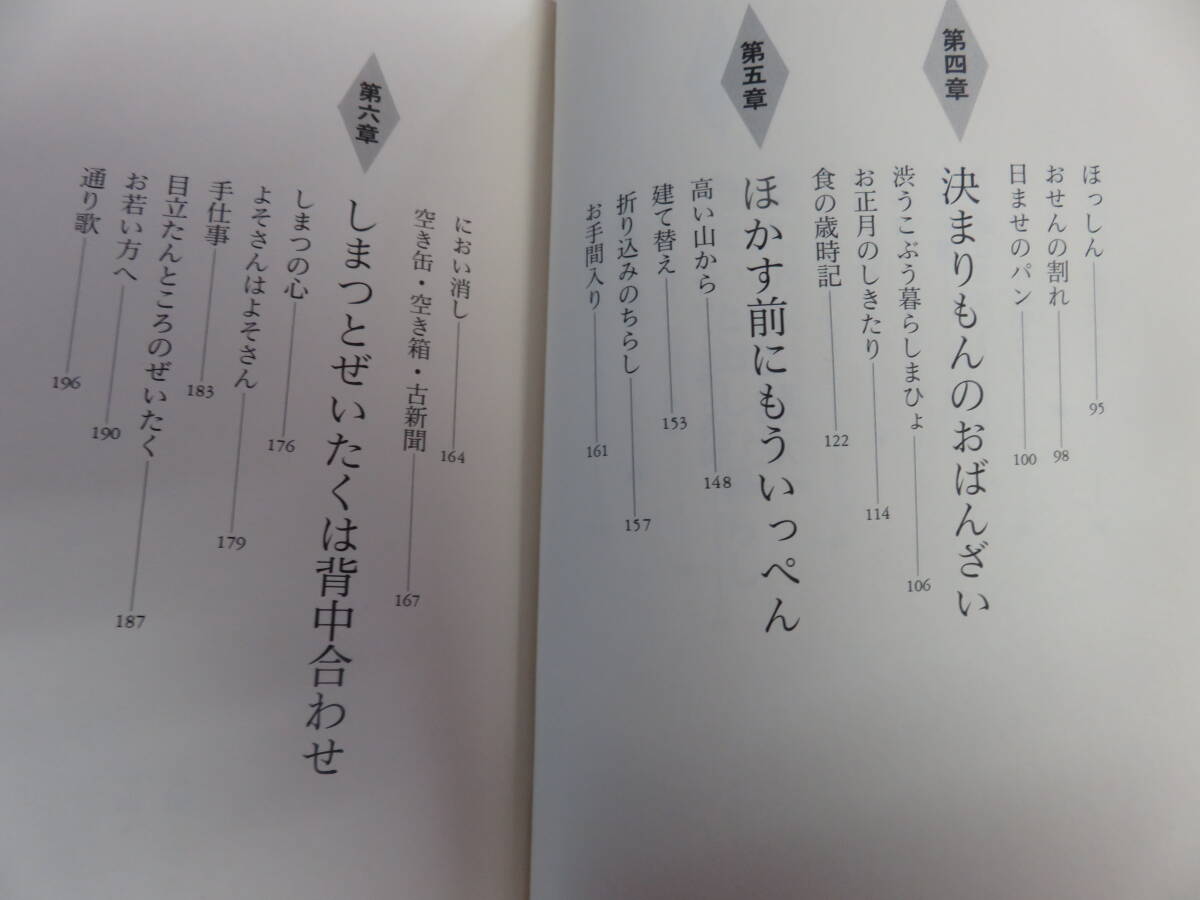 ほっしん 95
おせんの割れ 98
日ませのパン 100
第四章
決まりもんのおばんざい
渋うこぶう暮らしまひょ 106
お正月のしきたり 114
食の歳時記 122
第五章
ほかす前にもういっぺん
高い山から 148
建て替え 153
折り込みのちらし 157
お手間入り 161
におい消し 164
空き缶・空き箱・古新聞 167
第六章
しまつとぜいたくは背中合わせ
しまつの心 176
よそさんはよそさん 179
手仕事 183
目立たんところのぜいたく 187
お若い方へ 190
通り歌 196